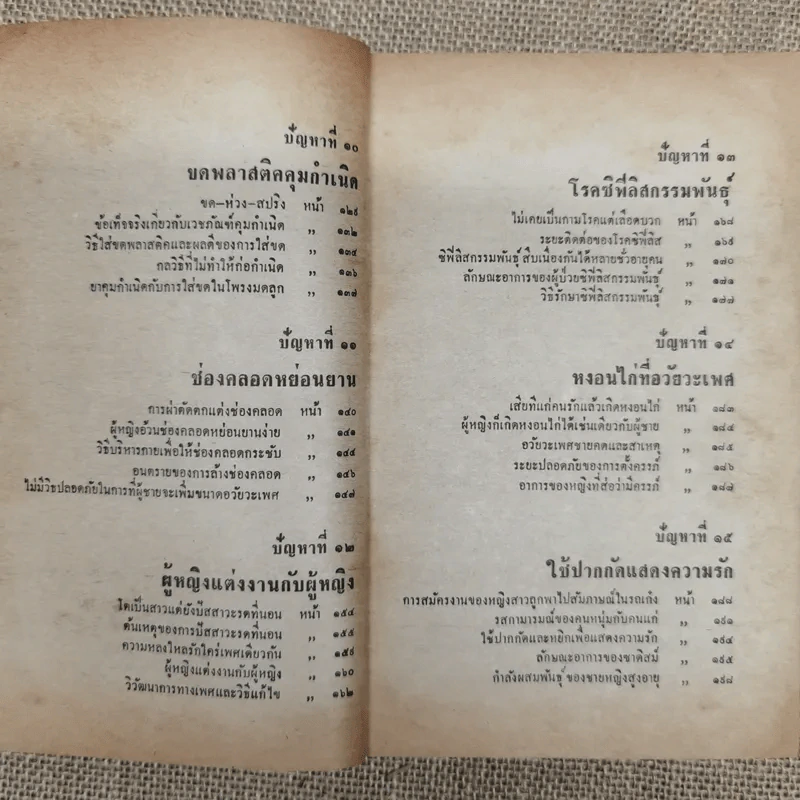 ปัญหาที่ ๑๐
ขดพลาสติคคุมกำเนิด
ขด-ห่วง-สปริง หน้า ๑๒๙
ข้อเท็จจริงเกี่ยวกับเวชภัณฑ์คุมกำเนิด ,, ๑๓๒
วิธีใส่ขดพลาสติคและผลดีของการใส่ขด ,, ๑๓๔
กลวิธีที่ไม่ทำให้ก่อกำเนิด ,, ๑๓๖
ยาคุมกำเนิดกับการใส่ขดในโพรงมดลูก ,, ๑๓๗
ปัญหาที่ ๑๑
ช่องคลอดหย่อนยาน
การผ่าตัดตกแต่งช่องคลอด หน้า ๑๔๐
ผู้หญิงอ้วนช่องคลอดหย่อนยานง่าย ,, ๑๔๑
วิธีบริหารกายเพื่อให้ช่องคลอดกระชับ ,, ๑๔๔
อันตรายของการล้างช่องคลอด ,, ๑๔๖
ไม่มีวิธีปลอดภัยในการที่ผู้ชายจะเพิ่มขนาดอวัยวะเพศ ,, ๑๔๗
ปัญหาที่ ๑๒
ผู้หญิงแต่งงานกับผู้หญิง
โตเป็นสาวแต่ยังปัสสาวะรดที่นอน หน้า ๑๕๔
ต้นเหตุของการปัสสาวะรดที่นอน ,, ๑๕๕
ความหลงใหลรักใคร่เพศเดียวกัน ,, ๑๕๙
ผู้หญิงแต่งงานกับผู้หญิง ,, ๑๖๐
วิวัฒนาการทางเพศและวิธีแก้ไข ,, ๑๖๒
ปัญหาที่ ๑๓
โรคซิฟิลิสกรรมพันธุ์
ไม่เคยเป็นกามโรคแต่เลือดบวก หน้า ๑๖๘
ระยะติดต่อของโรคซิฟิลิส ,, ๑๖๙
ซิฟิลิสกรรมพันธุ์ สืบเนื่องกันได้หลายชั่วอายุคน ,, ๑๗๐
ลักษณะอาการของผู้ป่วยซิฟิลิสกรรมพันธุ์ ,, ๑๗๑
วิธีรักษาซิฟิลิสกรรมพันธุ์ ,, ๑๗๗
ปัญหาที่ ๑๔
หงอนไก่ที่อวัยวะเพศ
เสียทีแก่คนรักแล้วเกิดหงอนไก่ หน้า ๑๘๓
ผู้หญิงก็เกิดหงอนไก่ได้เช่นเดียวกับผู้ชาย ,, ๑๘๔
อวัยวะเพศชายคดและสาเหตุ ,, ๑๘๕
ระยะปลอดภัยของการตั้งครรภ์ ,, ๑๘๖
อาการของหญิงที่ส่อว่ามีครรภ์ ,, ๑๘๗
ปัญหาที่ ๑๕
ใช้ปากกัดแสดงความรัก
การสมัครงานของหญิงสาวถูกพาไปสัมภาษณ์ในรถเก๋ง หน้า ๑๘๘
รสกามารมณ์ของคนหนุ่มกับคนแก่ ,, ๑๙๑
ใช้ปากกัดและหยิกเพื่อแสดงความรัก ,, ๑๙๔
ลักษณะอาการของซาดิสม์ ,, ๑๙๕
กำลังผสมพันธุ์ ของชายหญิงสูงอายุ ,, ๑๙๘